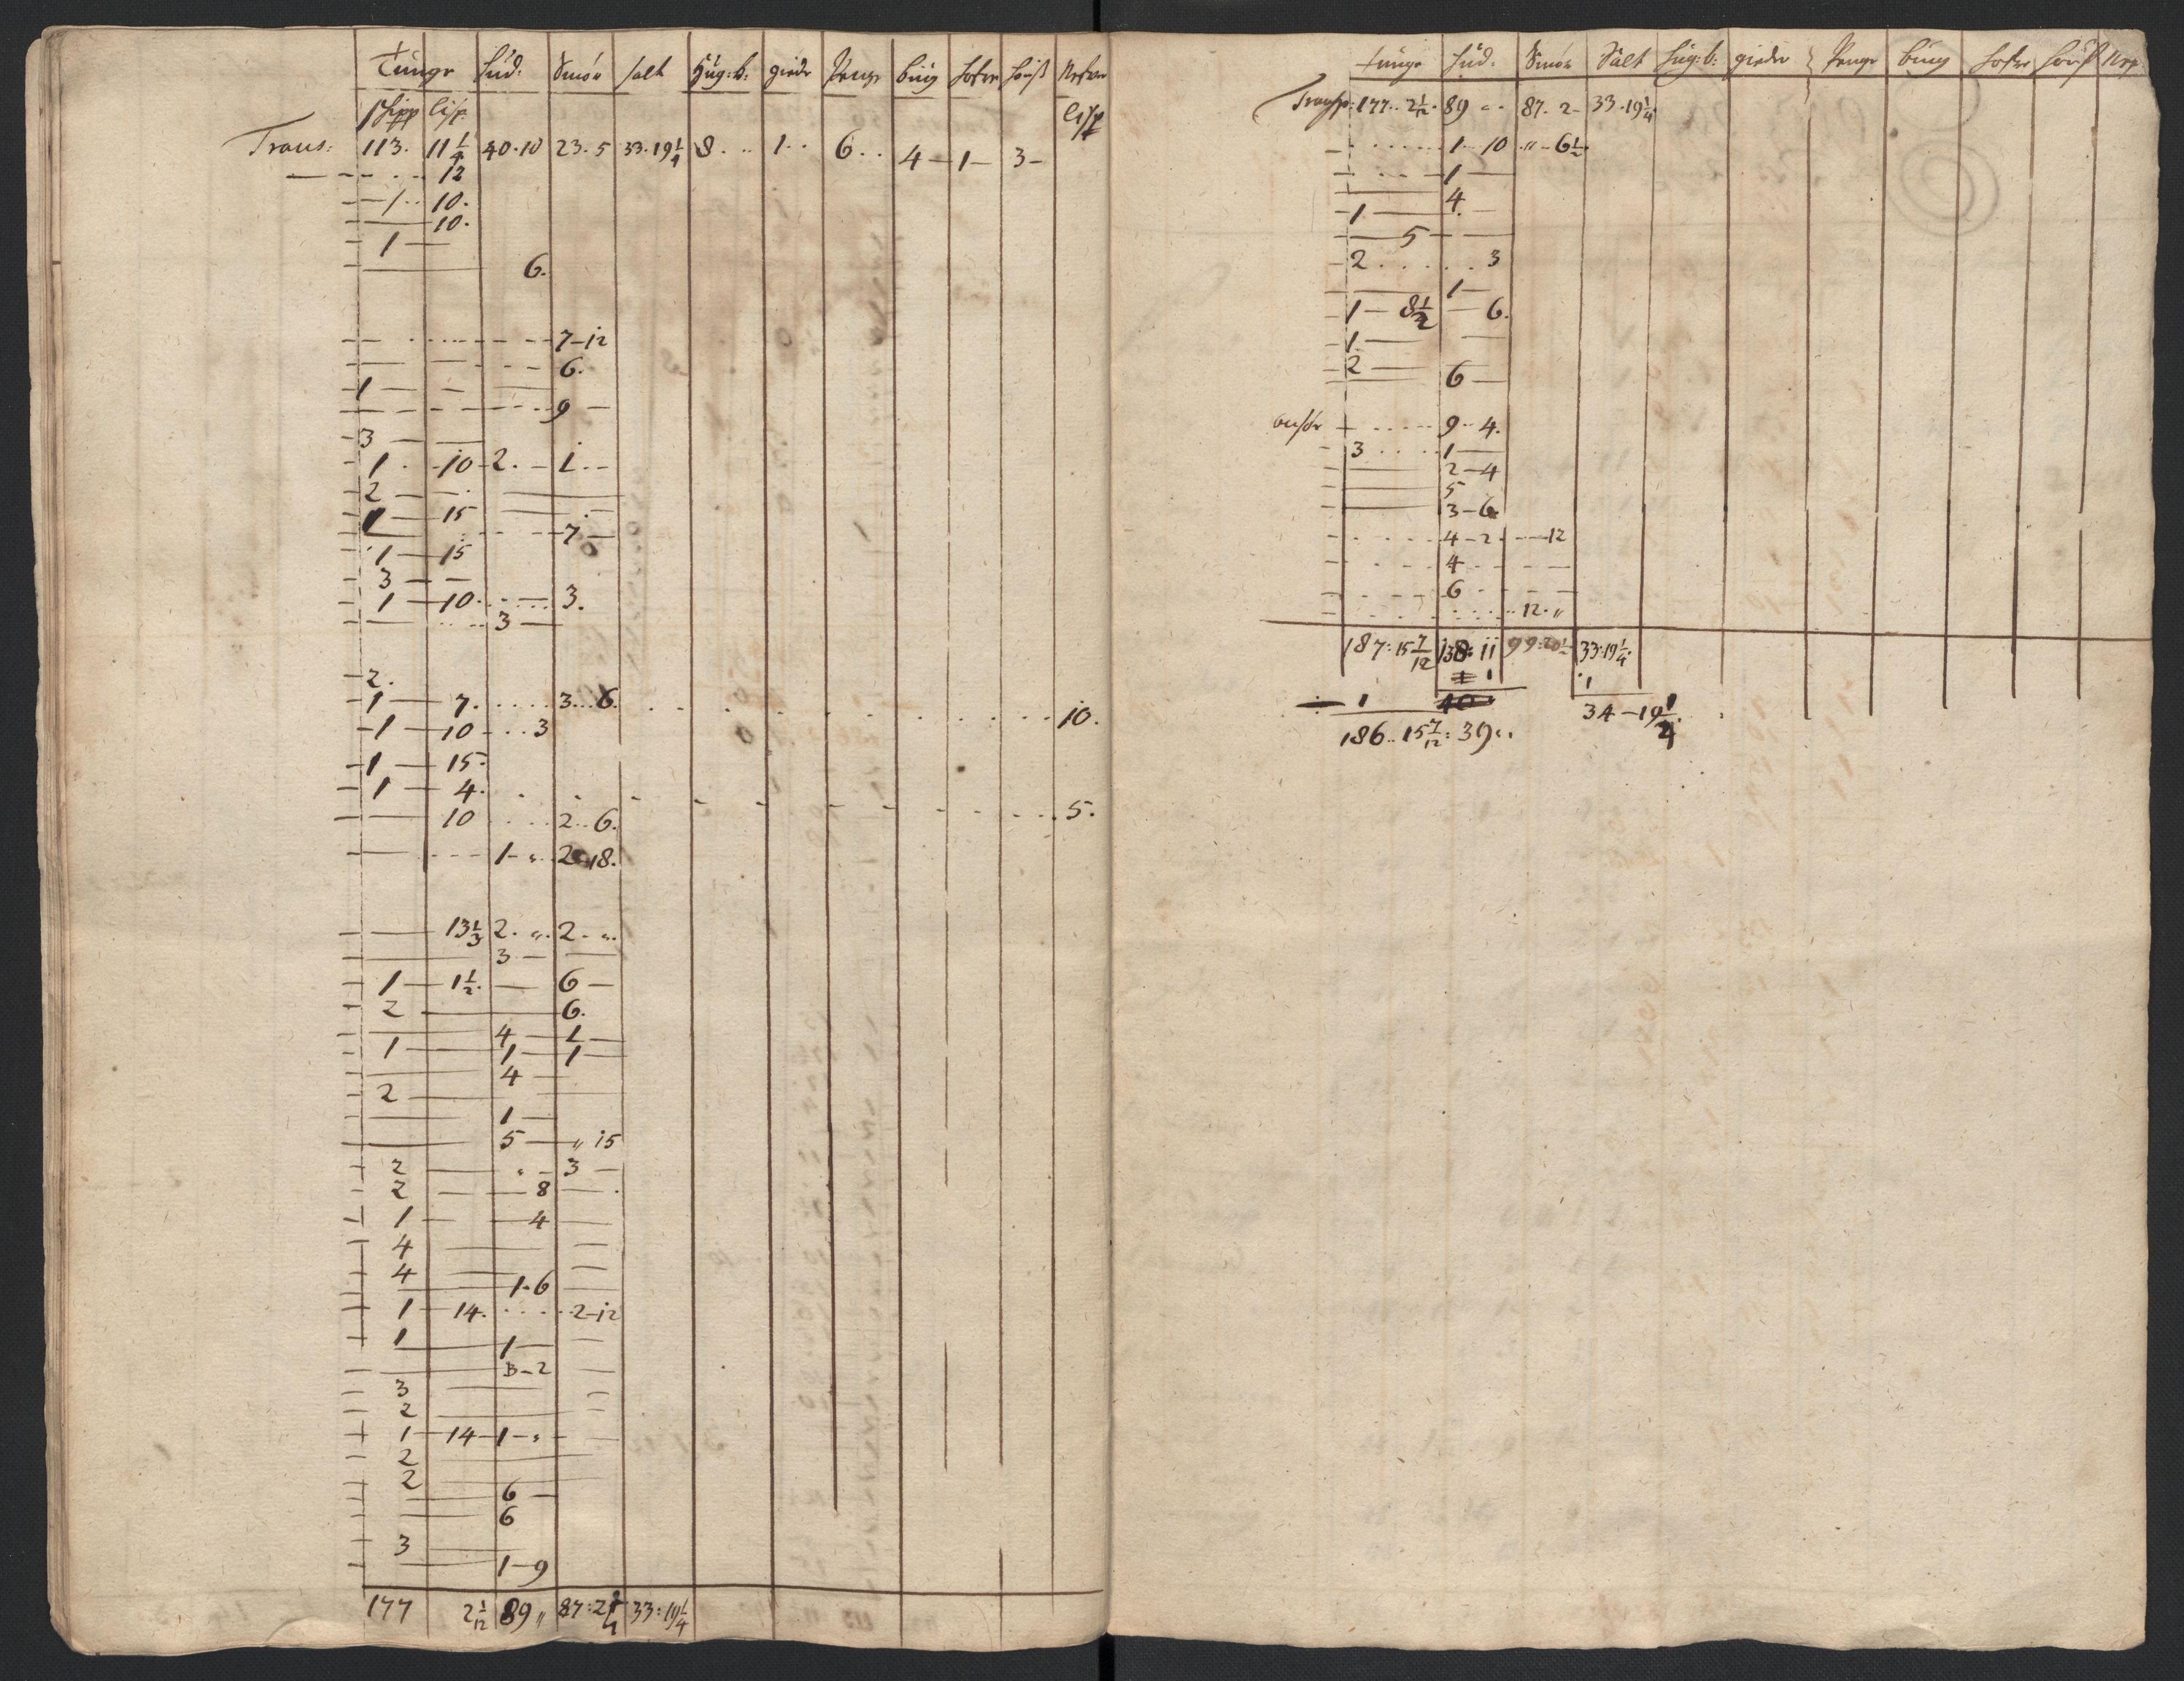 Tunge hud: Smör salt Hug:b: giedr Penge bug hofer hous Nefwr
skipp lisp lisp
Trans: 113. 11 1/4 40.10 23.5 33.19 1/4 8.. 1.. 6.. 4 — 1 — 3 —
12
1.. 10.
10.
1 —
6.
7 — 12
6.
1 —
9 —
3 —
1. 10 2. — 1. —
2 —
1 — 15
7 —
1 — 15
3 —
1 — 10. 3.
3 —
2.
1 — 7. 3..6. 10.
1 — 10 3
1 — 15.
1 — 4. 5.
10 2..6.
1 — „ 2 18.
13 1/3 2. „. 2. „.
3 —
1 — 1 1/2. — 6 —
2 — 6.
4 — 1 —
1 — 1 — 1 —
4 —
2 —
1 —
5 — „ 15
2 — „ — 3 —
2 — 8 —
1 — 4 —
4 —
4 —
1 — 6
1 — 14. 2 — 12
1 — 1 —
B — 2
3 —
2 —
1 — 14 — 1 — „
2 —
2 —
6 —
6
3 —
1 — 9
177 2 1/12 89 „ 87:2 33:19 1/4
tunge hud. Smör Sált hug:b: giedr Penge bug hofer hous Nep.
Transp: 177.. 2 1/12. 89 „. 87. 2 — 33.19 1/4
1 — 10 „ — 6 1/2.
1 —
4.
1 —
5 —
2 . . . . . 3
1 —
1 — 8 1/2 — 6.
1. —
2 —
6 —
9 — 4.
3 . . . . 1 —
2 — 4
5
3 — 6
4 — 2. 12
4 —
6 —
12. „
187: 15 7/12 138: 11 99: 33:19 1/4
1 1
— 1 40 34 — 19 1/4
186.. 15 7/12: 39 „